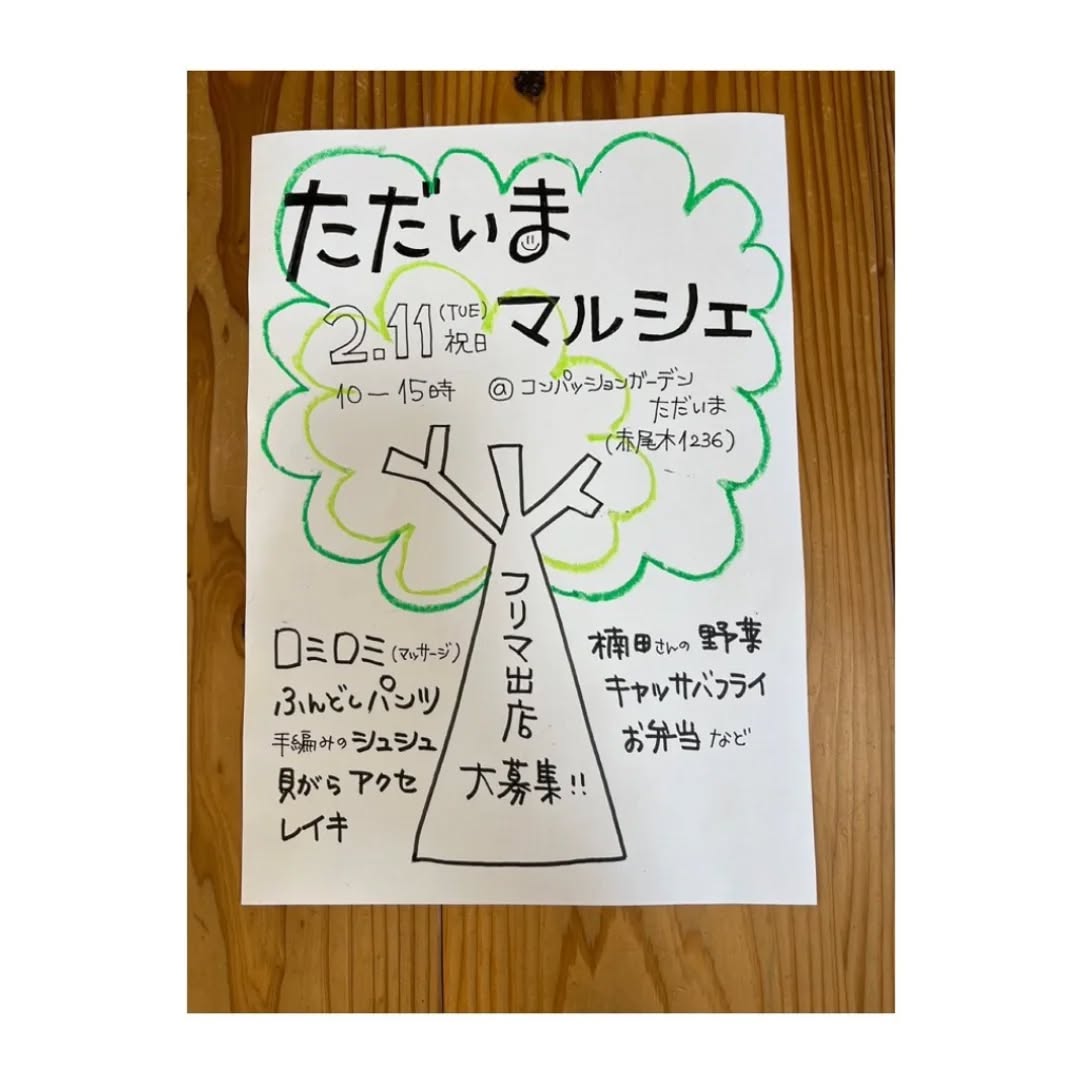 ただいま
マルシェ
2.11(TUE)祝日
10ー15時 @コンパッションガーデン
ただいま
(赤尾木1236)
フリマ出店
大募集!!
ロミロミ(マッサージ)
ふんどしパンツ
手編みのシュシュ
貝がらアクセ
レイキ
楠田さんの野菜
キャッサバフライ
お弁当など